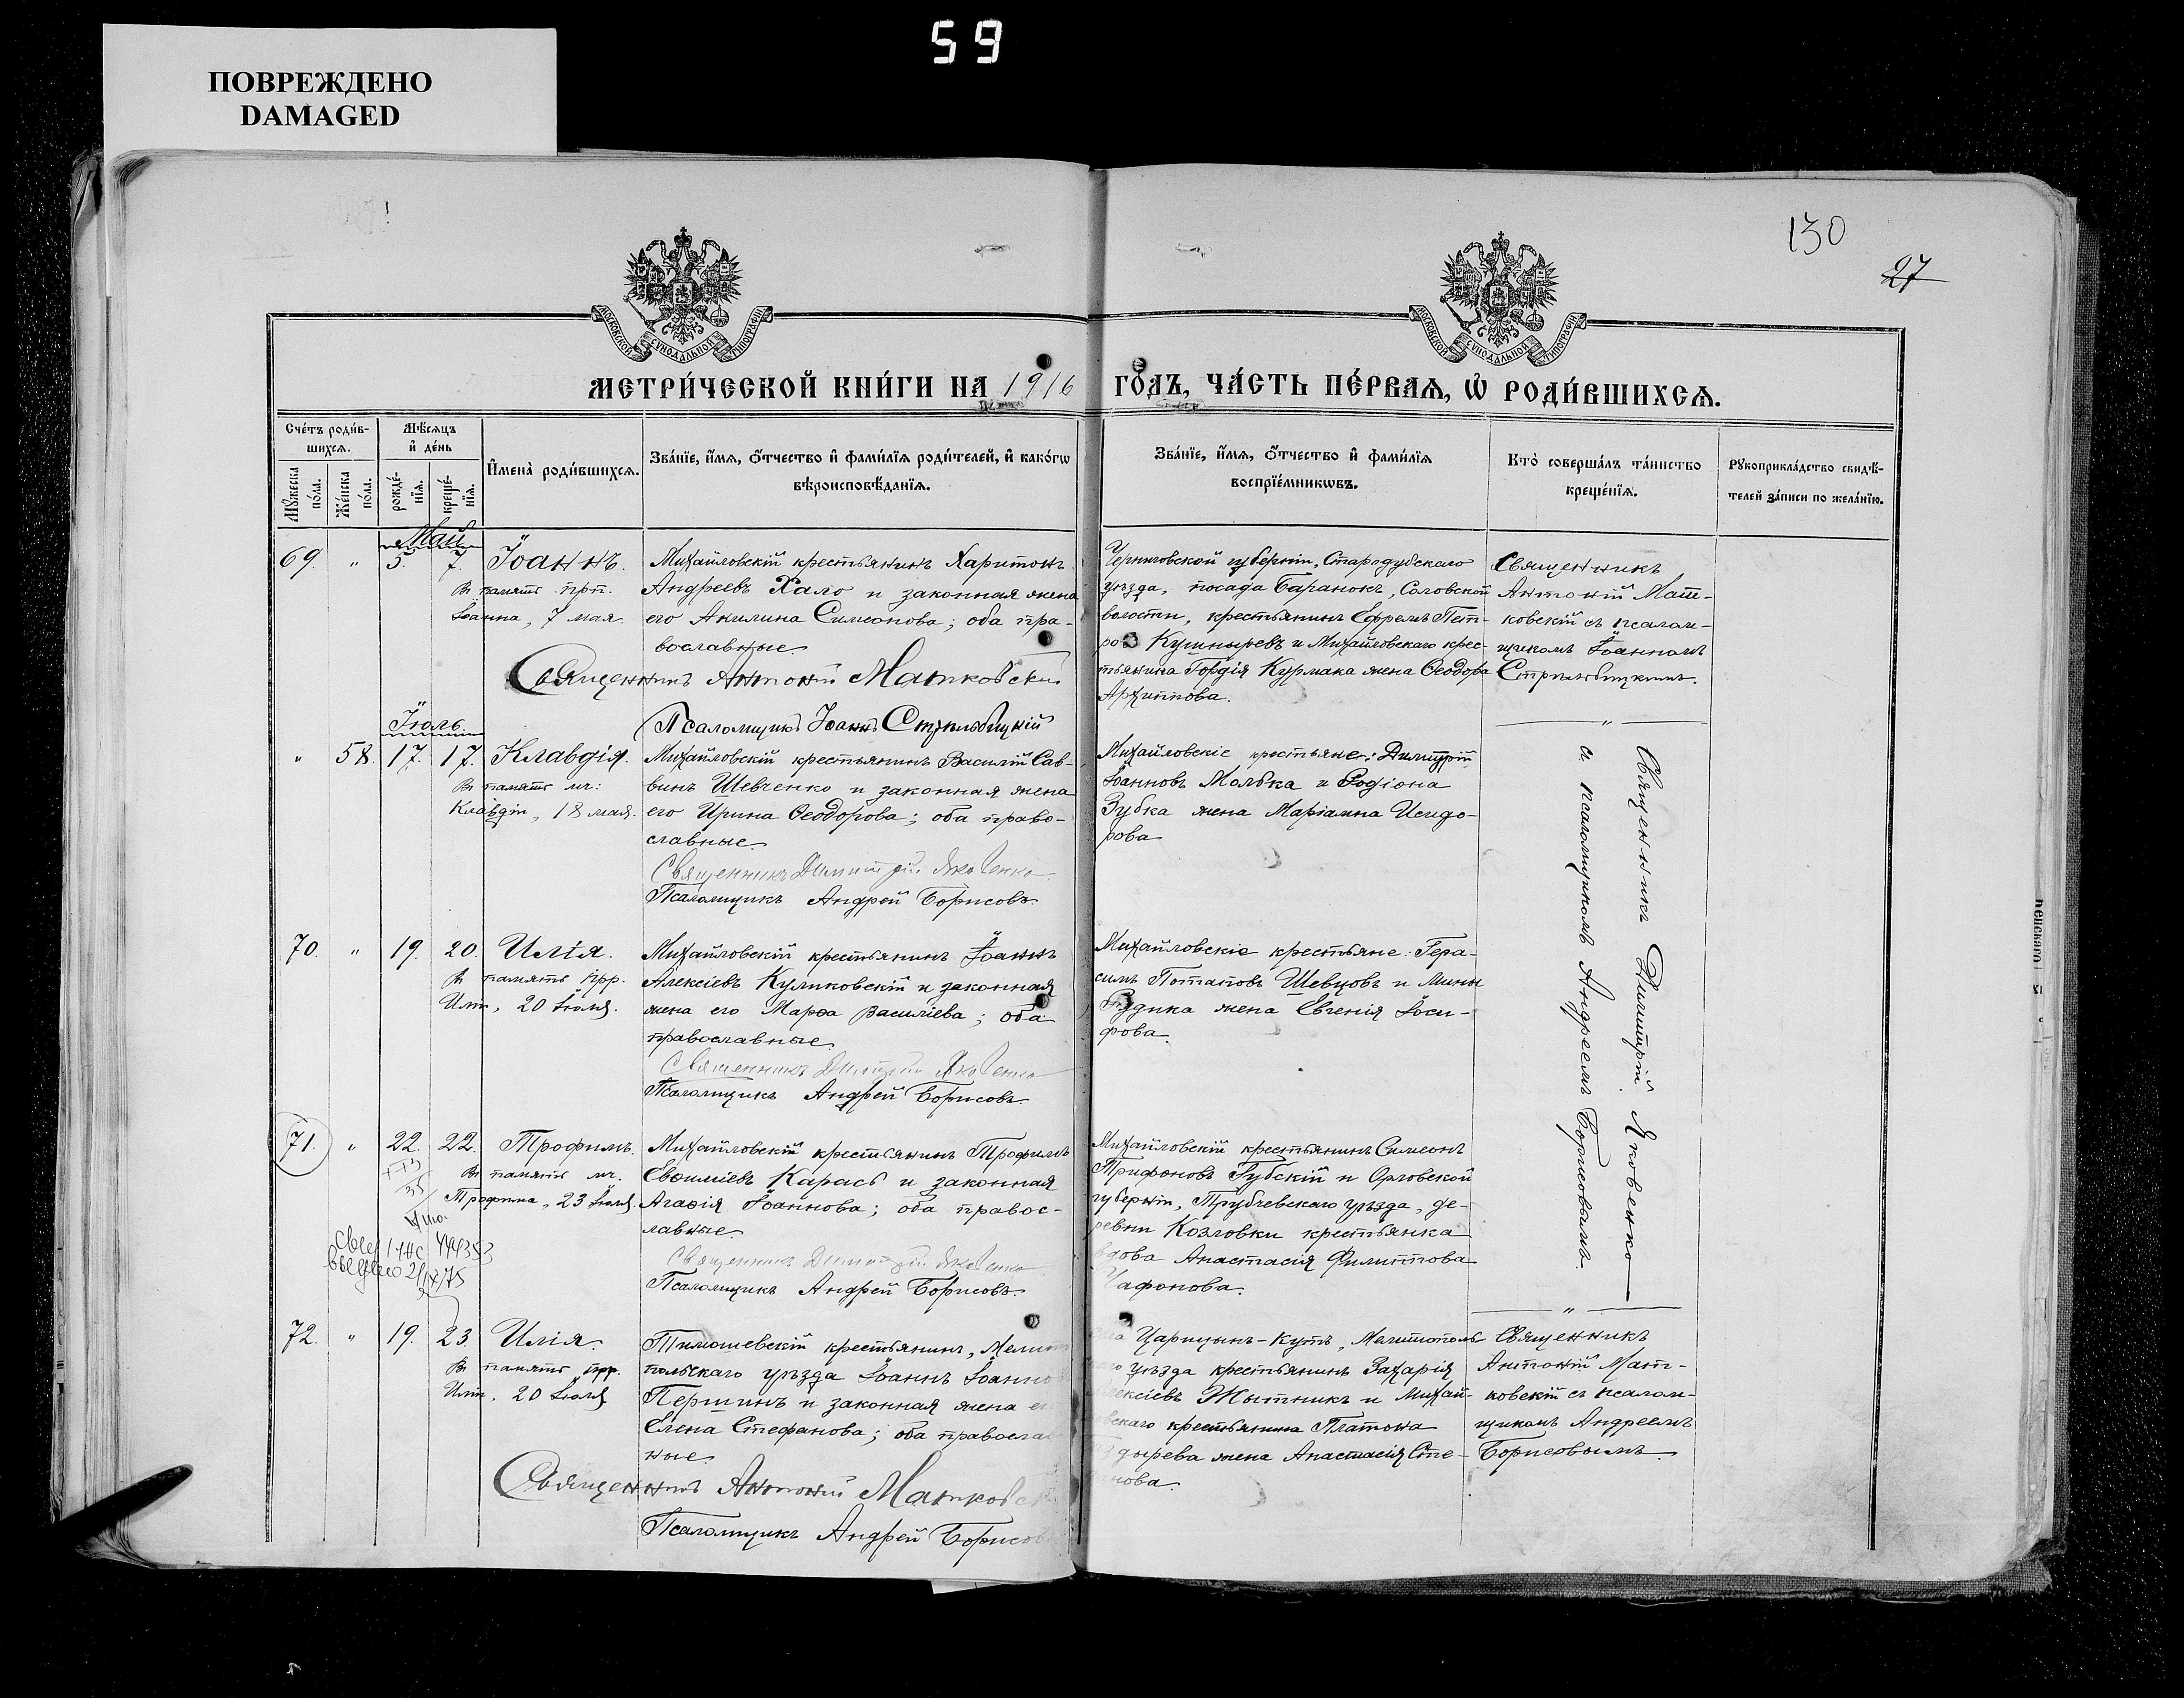 59
ПОВРЕЖДЕНО
DAMAGED
130
27
МОСКОВСКОЙ СѴНОДАЛЬНОЙ ТИПОГРАФІИ
МОСКОВСКОЙ СѴНОДАЛЬНОЙ ТИПОГРАФІИ
МЕТРИ́ЧЕСКОЙ КНИ́ГИ НА 1916 ГО́ДЪ, ЧА́СТЬ ПЕ́РВАѦ, Ѡ҆ РОДИ́ВШИХСѦ.
Сче́тъ роди́в-
шихсѧ.
Мѣ́сѧцъ
и҆ де́нь
Мꙋ́жеска
по́ла.
Же́нска
по́ла.
рожде́-
нїѧ.
креще́-
нїѧ.
И҆мена̀ роди́вшихсѧ.
Зва́нїе, и҆́мѧ, ѻ҆́тчество и҆ фами́лїѧ роди́телей, и҆ како́гѡ
вѣроисповѣ́данїѧ.
Зва́нїе, и҆́мѧ, ѻ҆́тчество и҆ фами́лїѧ
воспрїе́мникѡвъ.
Кто̀ соверша́лъ та́инство
креще́нїѧ.
Рꙋкоприкла́дство свидѣ́-
телей за́писи по жела́нїю.
Май
69. " 5. 7. Іоаннъ.
Въ память прп.
Іоанна, 7 мая.
Михайловскій крестьянинъ Харитонъ
Андреевъ Хало и законная жена
его Акилина Симеонова; оба пра-
вославные.
Священникъ Антоній Матковскій
Псаломщикъ Іоаннъ Стрильбицкій
Черниговской губерніи, Стародубскаго
уѣзда, посада Баранокъ, Соловской
волости, крестьянинъ Ефремъ Пет-
ро Кушныревъ и Михайловскаго крес-
тьянина Гордія Курмака жена Ѳеодора
Архиппова.
Священникъ
Антоній Мат-
ковскій съ псалом-
щикомъ Іоанномъ
Стрильбицкимъ.
Іюль.
" 58. 17. 17. Клавдія.
Въ память мч:
Клавдіи, 18 мая.
Михайловскій крестьянинъ Василій Сав-
винъ Шевченко и законная жена
его Ирина Ѳеодорова; оба право-
славные.
Священникъ Димитрій Яковенко
Псаломщикъ Андрей Борисовъ.
Михайловскіе крестьяне: Димитрій
Іоанновъ Молбка и Родіона
Зубка жена Маріамна Исидо-
рова
Священникъ Димитрій Яковенко
и псаломщикомъ Андреемъ Борисовымъ.
70. " 19. 20. Илія.
Въ память прр.
Иліи, 20 Іюля.
Михайловскій крестьянинъ Іоаннъ
Алексіевъ Куликовскій и законная
жена его Марѳа Василіева; оба
православные.
Священникъ Димитрій Яковенко
Псаломщикъ Андрей Борисовъ.
Михайловскіе крестьяне: Гера-
симъ Потаповъ Шевцовъ и Мины
Рудика жена Евгенія Іоси-
фова.
71. " 22. 22. Трофимъ.
Въ память мч.
Трофима, 23 Іюля.
Михайловскій крестьянинъ Трофимъ
Евѳиміевъ Карась и законная
Агаѳія Іоаннова; оба правос-
лавные.
Священникъ Димитрій Яковенко
Псаломщикъ Андрей Борисовъ.
Михайловскій крестьянинъ Симеонъ
Трифоновъ Губскій и Орловской
губерніи, Трубчевскаго уѣзда, де-
ревни Козловки крестьянка
вдова Анастасія Филиппова
фонова.
72. " 19. 23. Илія.
Въ память прр.
Иліи, 20 Іюля
Тимошевскій крестьянинъ, Мелит
польскаго уѣзда Іоаннъ Іоанно
Першинъ и законная жена е
Елена Стефанова; оба правосла
ные.
Священникъ Антоній Матковс
Псаломщикъ Андрей Борисов
Царицынъ-Кутъ, Мелитополь
уѣзда крестьянинъ Захарія
ексіевъ Жытникъ и Михай-
вскаго крестьянина Платона
дырева жена Анастасія Сте-
нова.
Священникъ
Антоній Мат-
ковскій съ псалом-
щикомъ Андреемъ
Борисовымъ.